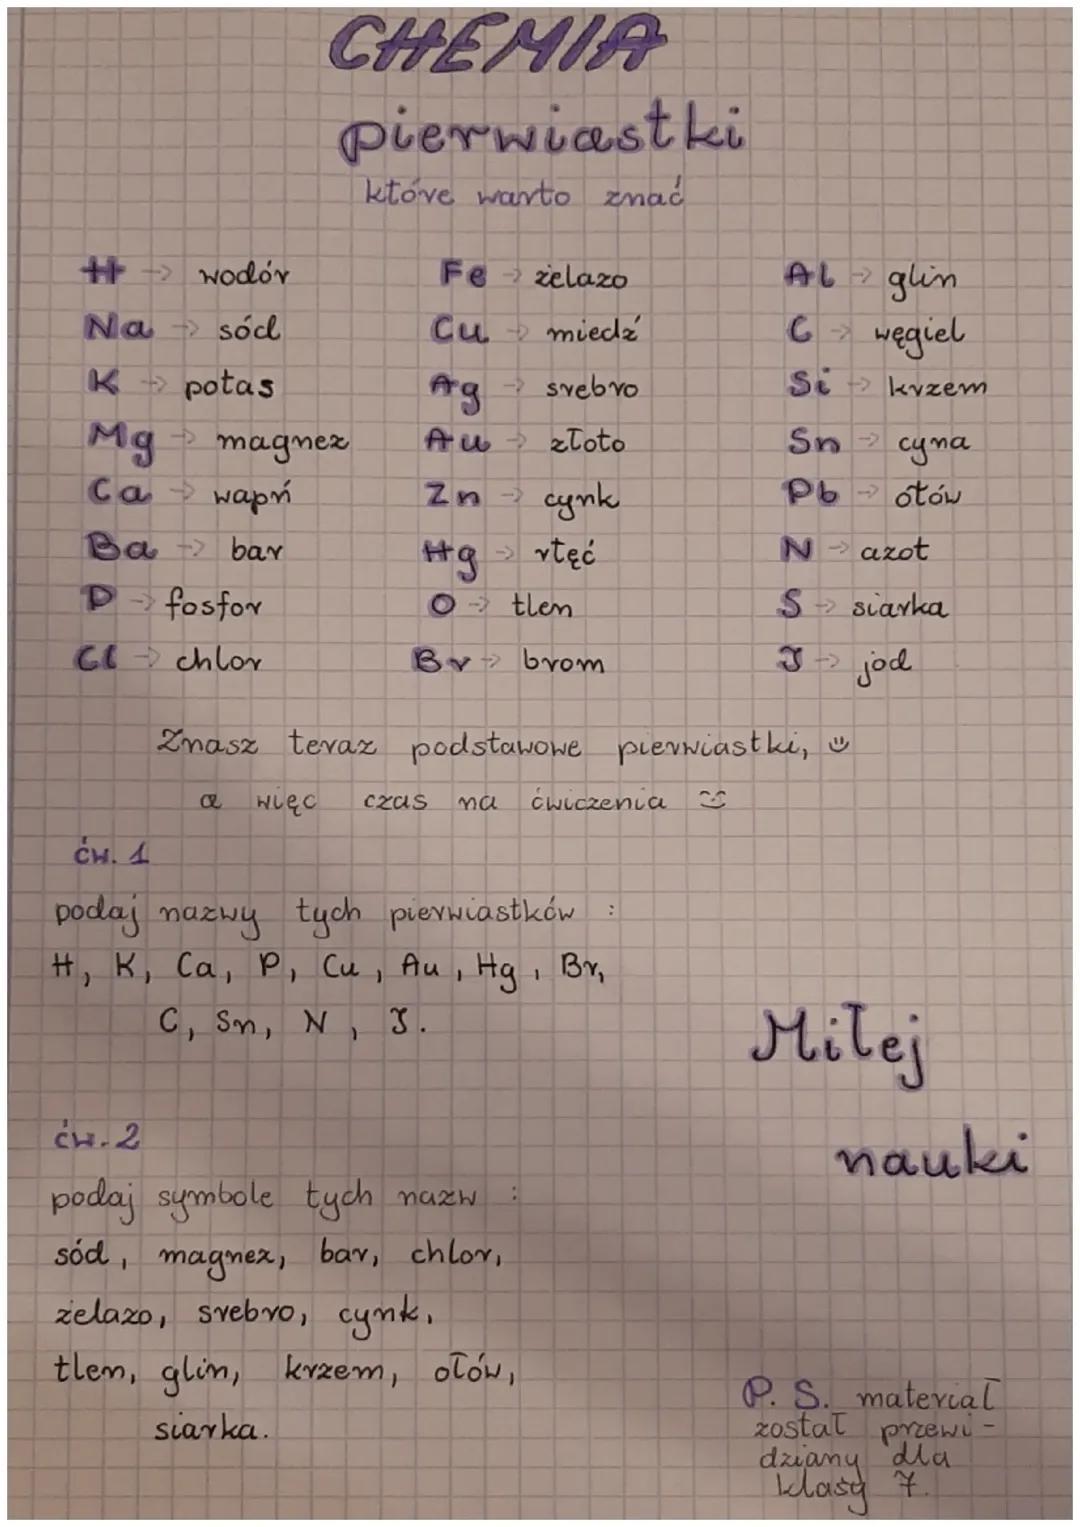 CHEMIA
pierwiastki
które warto znać
H → wodór Fe → żelazo Al → glin
Na → sód Cu → miedź C → węgiel
K → potas Ag → srebro Si → krzem
Mg → magnez Au → złoto Sn → cyna
Ca → wapń Zn → cynk Pb → ołów
Ba → bar Hg → rtęć N → azot
P → fosfor O → tlen S → siarka
Cl → chlor Br → brom J → jod
Znasz teraz podstawowe pierwiastki, ☺
a więc czas na ćwiczenia ☺
ćw. 1
podaj nazwy tych pierwiastków :
H, K, Ca, P, Cu, Au, Hg, Br,
C, Sn, N, J.
Miłej
nauki
ćw. 2
podaj symbole tych nazw :
sód, magnez, bar, chlor,
żelazo, srebro, cynk,
tlen, glin, krzem, ołów,
siarka.
P. S. materiał
został przewi-
dziany dla
klasy 7.